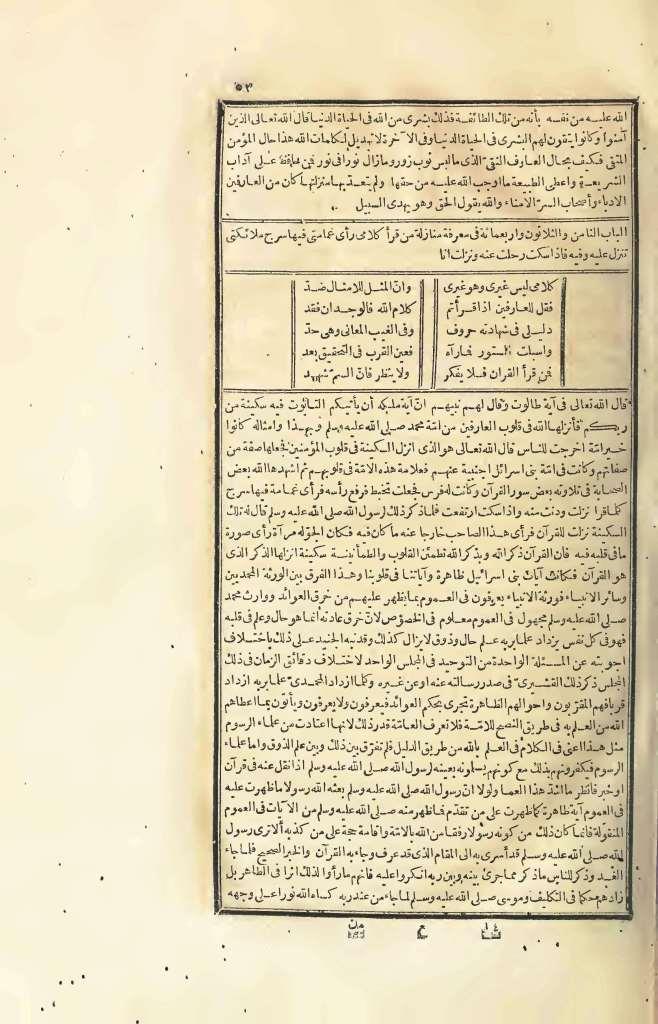 ٥٣
الله عليه من نفسه بأنه من تلك الطائفة فذلك بشرى من الله فى الحياة الدنيا قال الله تعالى الذين
آمنوا وكانوا يتقون لهم البشرى فى الحياة الدنيا وفى الآخرة لا تبديل لكلمات الله هذا حال المؤمن
المتقى فكيف بحال العارف النقى الذى مالبس ثوب زور ومازال نورا فى نور فمن حافظ على آداب
الشريعة واعطى الطبيعة ما اوجب الله عليه من حقها ولم يتعد بها منزلتها كان من العارفين
الادباء وأصحاب السر الامناء والله يقول الحق وهو يهدى السبيل
الباب الثامن والثلاثون واربعمائة فى معرفة منازلة من قرأ كلامى رأى غمامتى فيها سرج ملائكتى
تنزل عليه وفيه فاذا سكت رحلت عنه ونزلت انا
كلامى ليس غيرى وهو غيرى وانّ المثل للامثال ضدّ
فقل للعارفين اذا قرأتم كلام الله فالوجدان فقد
دليلى فى شهادته حروف وفى الغيب المعانى وهى حدّ
واسبلت الستور فعين القرب فى التحقيق بعد
فمن قرأ القران فلا يفكر ولا ينظر فانّ السمّ شهد
قال الله تعالى فى آية طالوت وقال لهم نبيهم انّ آية ملكه أن يأتيكم التابوت فيه سكينة من
ربكم فأنزلها الله فى قلوب العارفين من امّة محمد صلى الله عليه وسلم وبهذا وامثاله كانوا
خير امّة اخرجت للناس قال الله تعالى هو الذى انزل السكينة فى قلوب المؤمنين فجعلها صفة من
صفاتهم وكانت فى امّة بنى اسرائيل اجنبية عنهم فعلامة هذه الامّة فى قلوبهم ثم اشهدها الله بعض
الصحابة فى تلاوته بعض سور القرآن وكانت له فرس فجعلت تخبط فرفع رأسه فرأى غمامة فيها سرج
كلما قرا نزلت ودنت منه واذا سكت ارتفعت فلما ذكر ذلك لرسول الله صلى الله عليه وسلم قال له تلك
السكينة نزلت للقرآن فرأى هذا الصاحب خارجا عنه ما كان فيه فكان الجوّ له مرآة رأى صورة
ما فى قلبه فيه فانّ القرآن ذكر الله وبذكر الله تطمئن القلوب والطمأنينة سكينة انزلها الذكر الذى
هو القرآن فكانت آيات بنى اسرائيل ظاهرة وآياتنا فى قلوبنا وهذا الفرق بين الورثة المحمديين
وسائر الانبياء فورثة الانبياء يعرفون فى العموم بما يظهر عليهم من خرق العوائد ووارث محمد
صلى الله عليه وسلم مجهول فى العموم معلوم فى الخصوص لانّ خرق عادته انما هو حال وعلم فى قلبه
فهو فى كل نفس يزداد علما بربه علم حال وذوق لا يزال كذلك وقد نبه الجنيد على ذلك باختلاف
اجوبته عن المسئلة الواحدة من التوحيد فى المجلس الواحد لاختلاف دقائق الزمان فى ذلك
المجلس ذكر ذلك القشيرىّ فى صدر رسالته عنه او عن غيره وكلما ازداد المحمدىّ علما بربه ازداد
قربا فهم المقرّبون واحوالهم الظاهرة تجرى بحكم العوائد فيعرفون ولا يعرفون ويأتون بما اعطاهم
الله من العلم به فى طريق النصح للامّة فلا تعرف العامّة قدر ذلك لانها اعتادت من علماء الرسوم
مثل هذا اعنى فى الكلام فى العلم بالله من طريق الدليل فلم تفرّق بين ذلك وبين علم الذوق واما علماء
الرسوم فيكفرونهم بذلك مع كونهم يسلمونه بعينه لرسول الله صلى الله عليه وسلم اذا نقل عنه فى قرآن
او خبر فانظر ما اشدّ هذا العما ولولا انّ رسول الله صلى الله عليه وسلم بعثه الله رسولا ما ظهرت عليه
فى العموم آية ظاهرة كما ظهرت على من تقدّم فما ظهر منه صلى الله عليه وسلم من الآيات فى العموم
المنقولة فانما كان ذلك من كونه رسولا رفقا من الله بالامّة واقامة حجة على من كذبه ألا ترى رسول
الله صلى الله عليه وسلم قد أسرى به الى المقام الذى قد عرف وجاء به القرآن والخبر الصحيح فلما جاء
الغد وذكر للناس ما ذكر مما جرى بينه وبين ربه انكروا عليه فانهم ما رأوا لذلك اثرا فى الظاهر بل
زادهم حكما فى التكليف وموسى صلى الله عليه وسلم لما جاء من عند ربه كساه الله نورا على وجهه